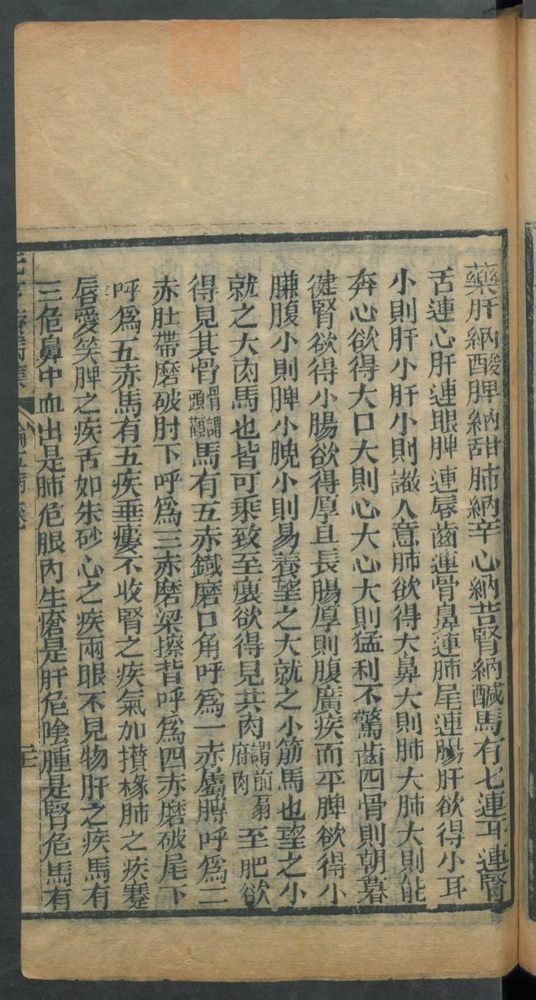 藥肝納酸脾納甜肺納辛心納苦腎納鹹馬有七連耳連腎
舌連心肝連眼脾連唇齒連骨鼻連肺尾連腸肝欲得小耳
小則肝小肝小則識人意肺欲得大鼻大則肺大肺大則能
奔心欲得大口大則心大心大則猛利不驚齒四骨則朝暮
健腎欲得小腸欲得厚且長腸厚則腹廣疾而平脾欲得小
膁腹小則脾小脾小則易養望之大就之小筋馬也望之小
就之大肉馬也皆可乘致至瘦欲得見其肉謂前肩府肉至肥欲
得見其骨謂頭顴骨馬有五赤鐵磨口角呼為一赤磨膊呼為二
赤肚帶磨破肘下呼為三赤磨梁擦背呼為四赤磨破尾下
呼為五赤馬有五疾垂瘻不收腎之疾氣加攅椽肺之疾蹇
唇愛笑脾之疾舌如朱砂心之疾兩眼不見物肝之疾馬有
三危鼻中血出是肺危眼內生瘡是肝危陰腫是腎危馬有